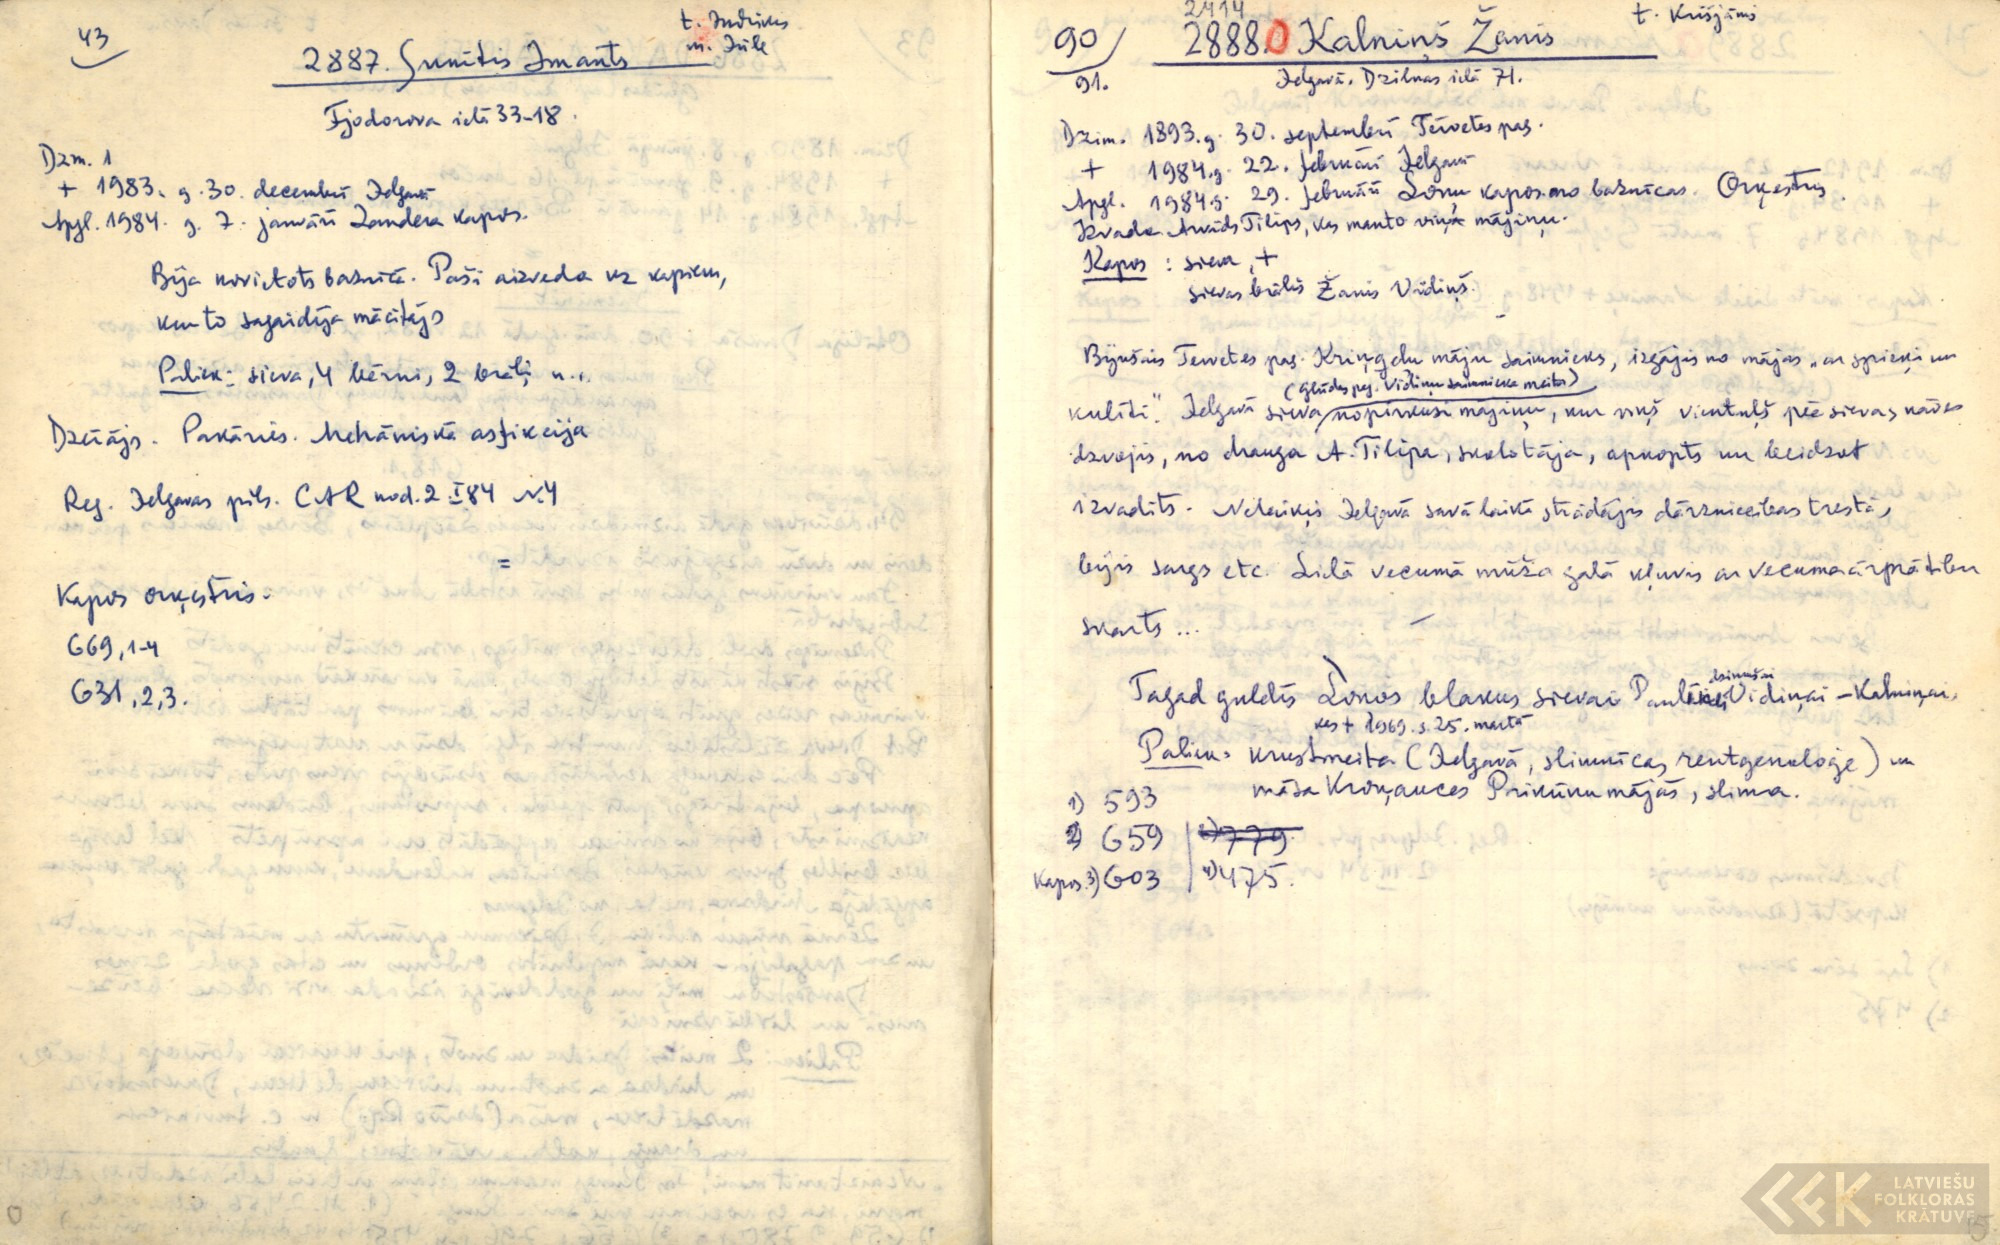 43
t. Indriķis
m. Jūle
2887. Imants
Fjodorova ielā 33-18.
Dzim. 1
+ 1983. g. 30. decembrī Jelgavā
Apgl. 1984. g. 7. janvārī Zandera kapos.
Bija novietots baznīcā. Paši aizveda uz kapiem,
kur to sagaidīja mācītājs
Paliek: sieva, 4 bērni, 2 brāļi u.
Dzērājs. Pakāries. Mehāniskā asfikcija
Reg. Jelgavas pils. CAR nod. 2. I 84 N 4
=
Kapos orķestris.
669, 1-4
631, 2, 3.
0
90/91.
2414
2888. 0 Kalniņš Žanis
t. Krišjānis
Jelgavā. Dzilnas ielā 71.
Dzim. 1893. g. 30. septembrī Tērvetes pag.
+ 1984. g. 22. februārī Jelgavā
Apgl. 1984. g. 29. februārī kapos no baznīcas. Orķestris.
Izvada Arvīds Tilips, kas manto viņa mājiņu.
Kapos: sieva, +
sievas brālis Žanis Vidiņš.
Bijušais Tērvetes pag. Kriņģeļu māju saimnieks, izgājis no mājas „ar spieķi un
(Glūdas pag. Vidiņu saimnieka meita)
kulīti". Jelgavā sieva nopirkusi mājiņu, kur viņš vientuļš pēc sievas nāves
dzvojis, no drauga A. Tilipa, skolotāja, apkopts un beidzot
izvadīts. Nelaiķis Jelgavā savā laikā strādājis dārzniecības trestā,
bijis sargs etc. Lielā vecumā mūža galā kļuvis ar vecuma ārprātību
skarts...
dzimušai
Tagad guldīs blakus sievai Paulīnei Vidiņai – Kalniņai,
kas + 1969. g. 25. martā
Paliek: krustmeita (Jelgavā, slimnīcas rentgenoloģe) un
māsa Kroņauces mājās, slima.
1) 593
2) 659 | 779
Kapos 3) 603 | 4) 475.
LATVIEŠU
FOLKLORAS
KRĀTUVE